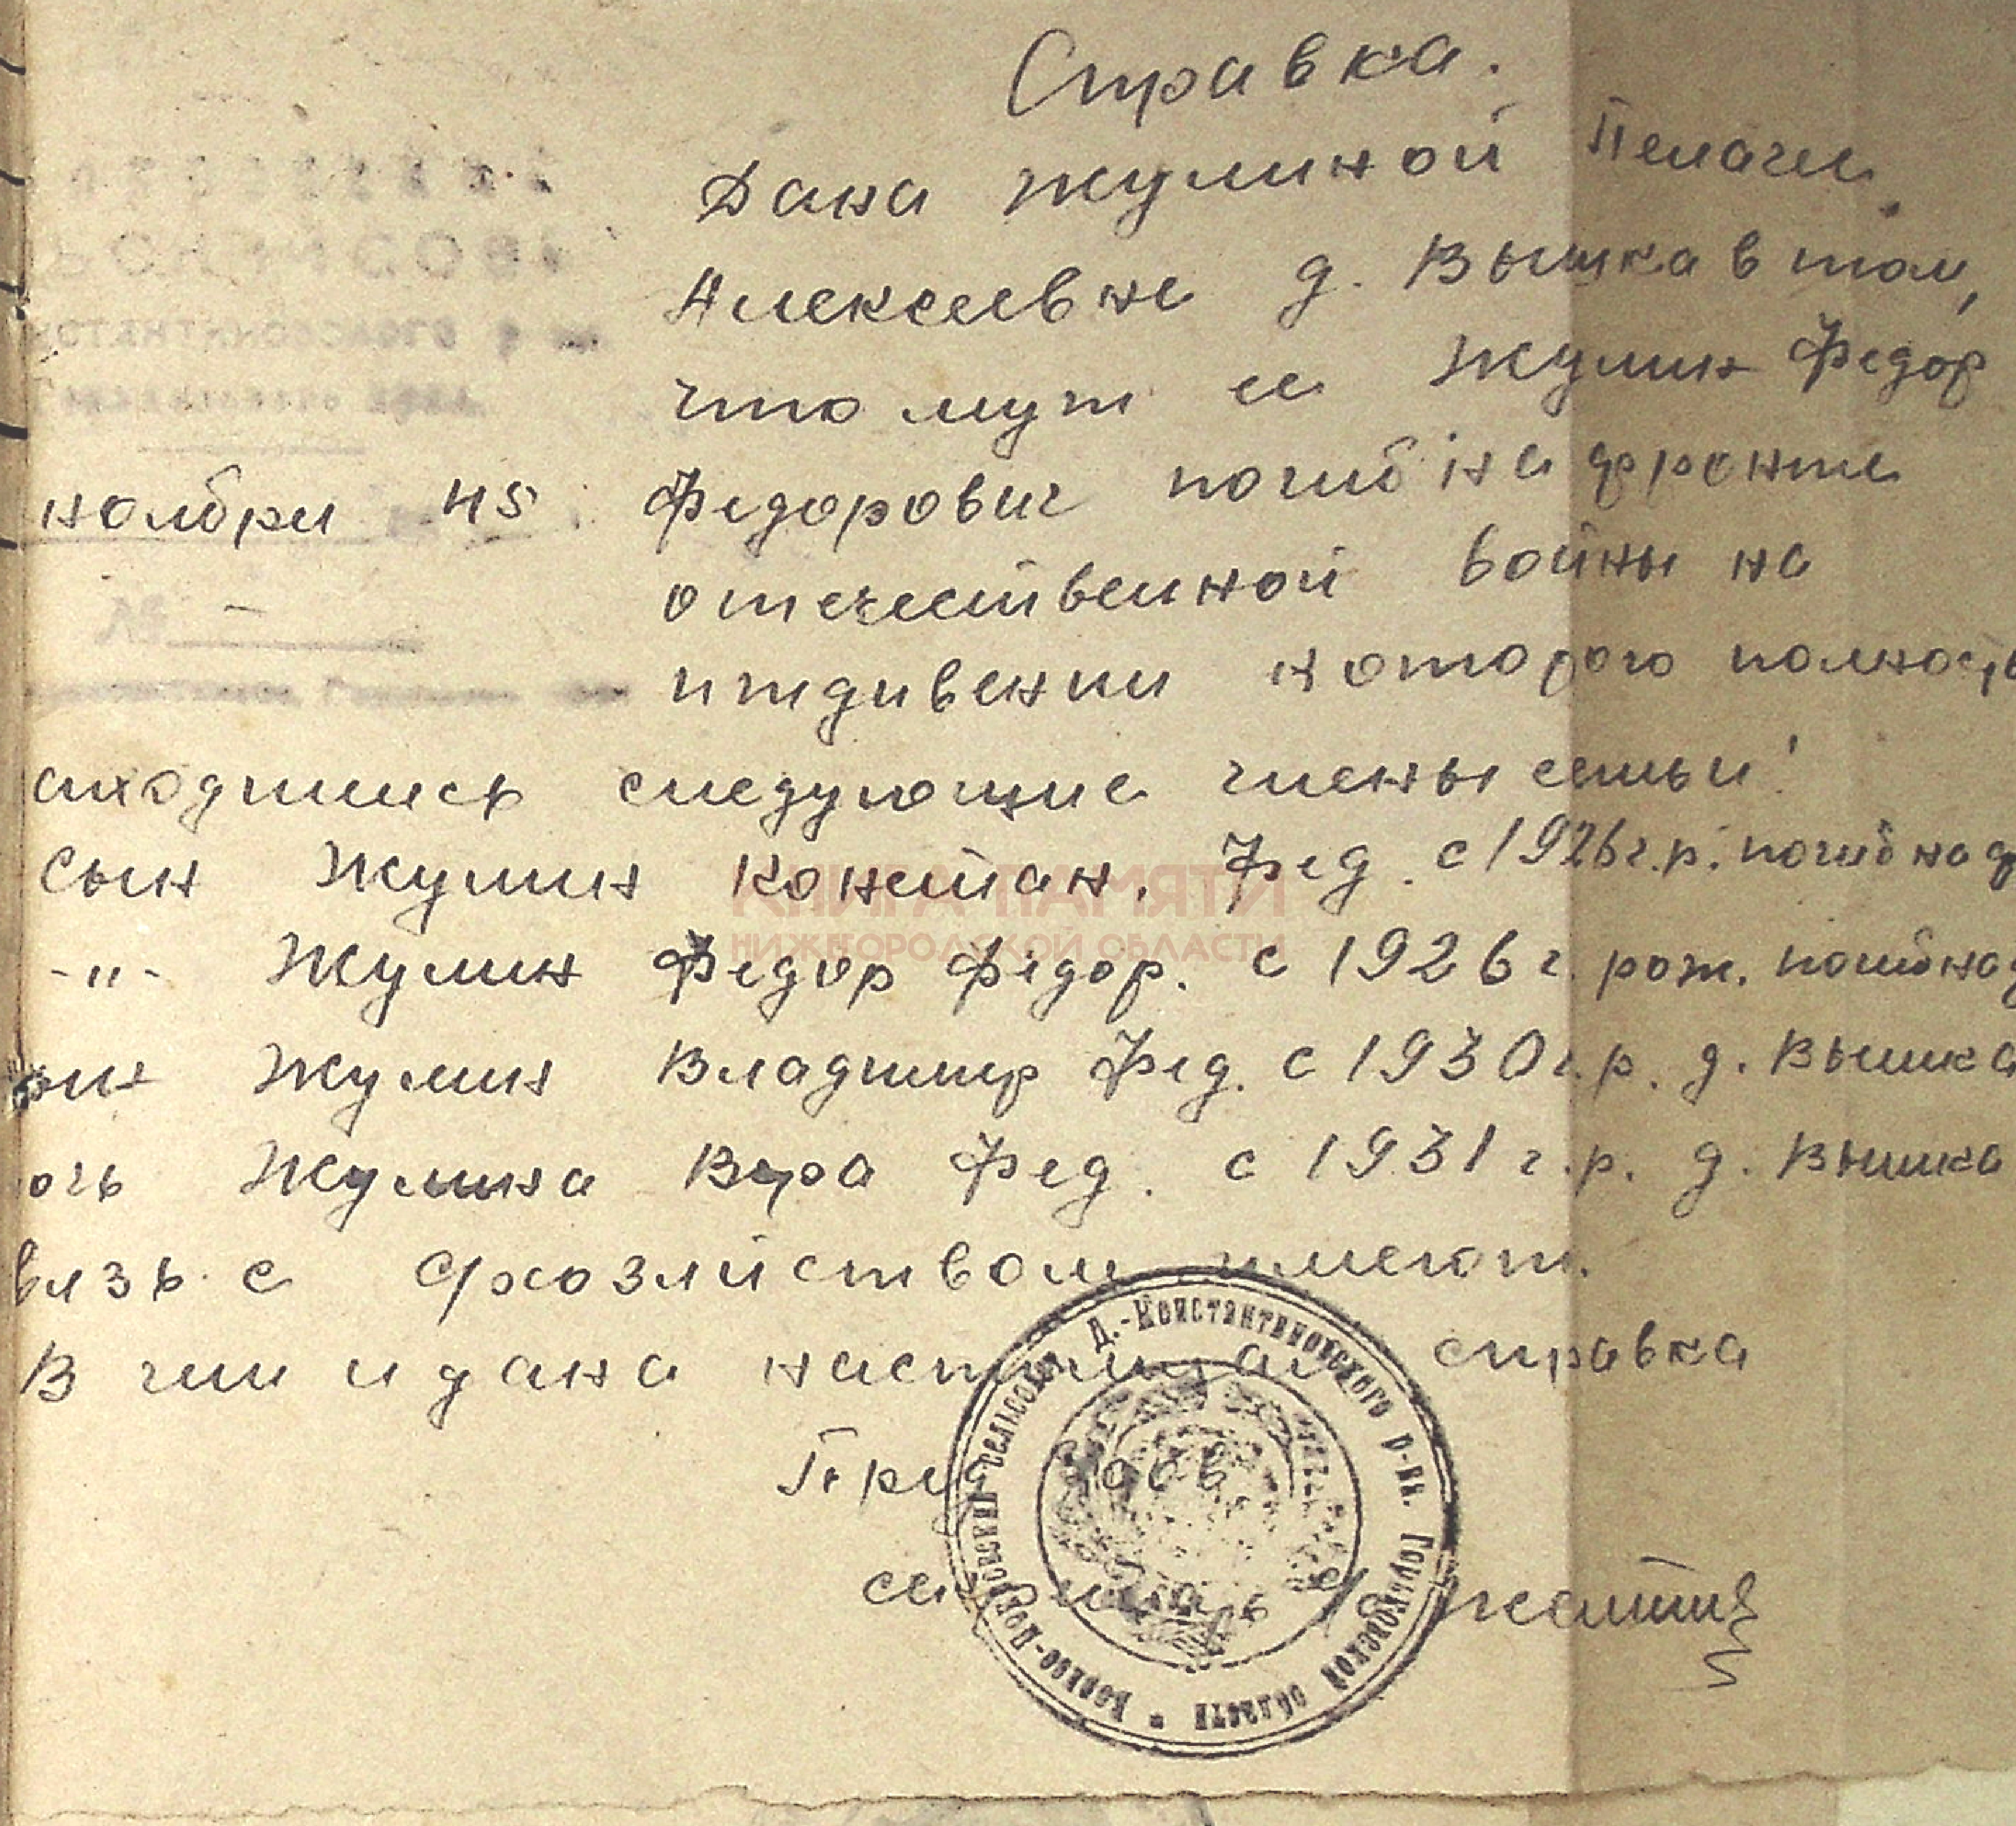 Справка.
Дана Жулиной Пелагеи
Алексеевне д. Вышка в том,
что муж ее Жулин Федор
ноября 45 Федорович погиб на фронте
отечественной войны на
иждивении которого полность
аходились следующие члены семьи:
сын Жулин Констан. Фед. с 1926 г.р. погиб на ф
-"- Жулин Федор Федор. с 1926 г. рож. погиб на ф
Жулин Владимир Фед. с 1930 г.р. д. Вышка
очь Жулина Вера Фед. с 1931 г.р. д. Вышка
вязь с с/хозяйством имеют.
В чем и дана настоящая справка
КНИГА ПАМЯТИ
НИЖЕГОРОДСКОЙ ОБЛАСТИ
№ -
сельсовет Д.-Константиновского р-на. Горьковской области